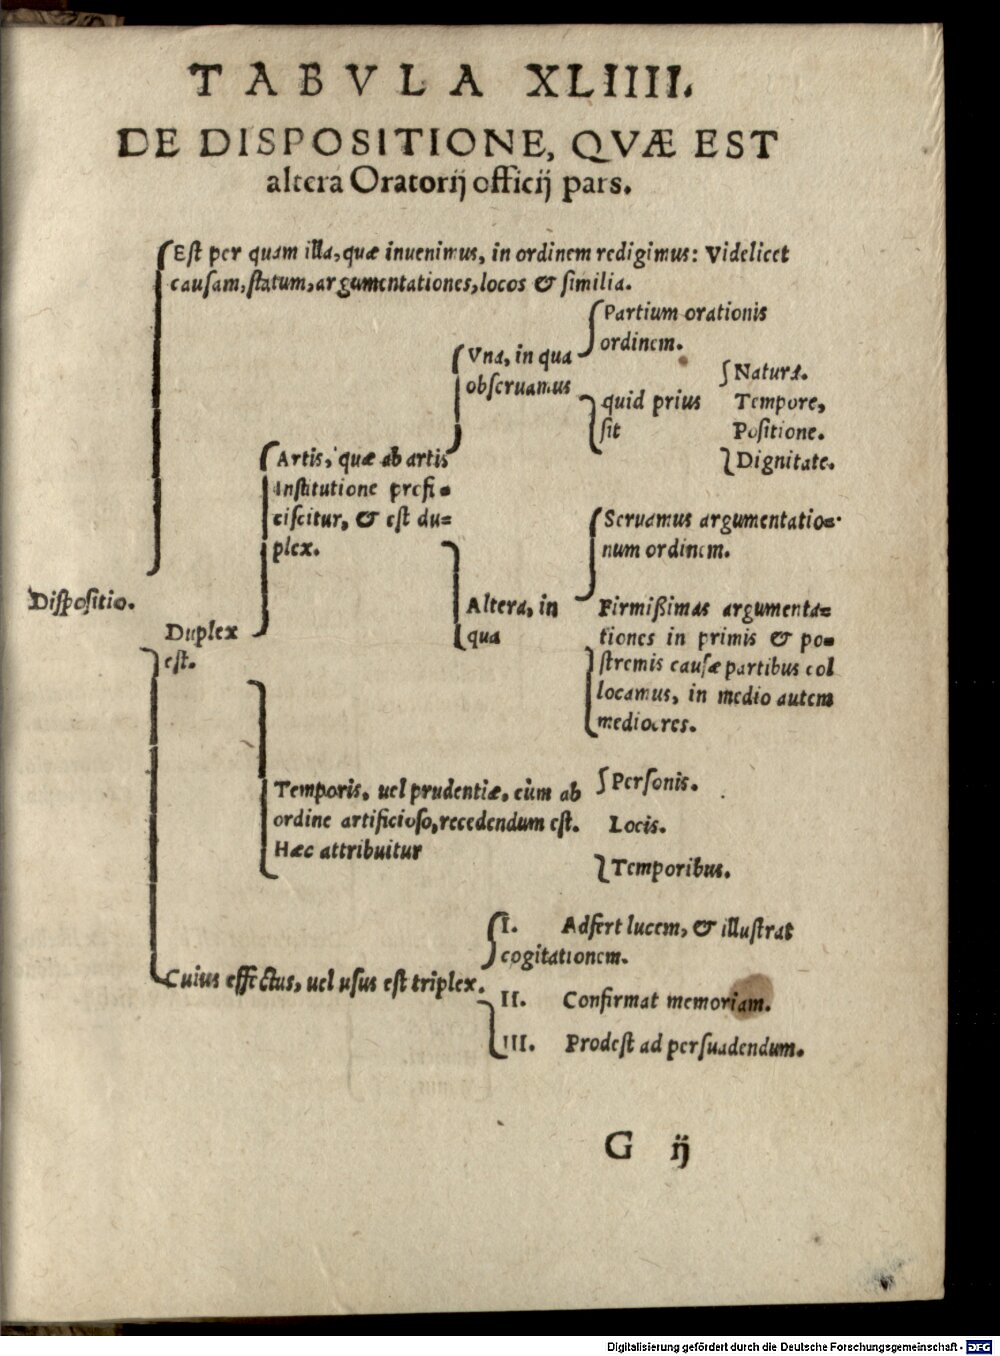 TABVLA XLIIII.
DE DISPOSITIONE, QVÆ EST
altera Oratorij officij pars.
Est per quam illa, quæ inuenimus, in ordinem redigimus: Videlicet
causam, statum, argumentationes, locos & similia.
Partium orationis
ordinem.
Vna, in qua
obseruamus
Natura.
quid prius
sit
Tempore,
Positione.
Dignitate.
Artis, quæ ab artis
institutione profi-
ciscitur, & est du=
plex.
Seruamus argumentatio=
num ordinem.
Dispositio.
Altera, in
qua
Firmißimas argumenta=
tiones in primis & po=
stremis causæ partibus col
locamus, in medio autem
mediocres.
Duplex
est.
Temporis, uel prudentiæ, cùm ab
ordine artificioso, recedendum est.
Hæc attribuitur
Personis.
Locis.
Temporibus.
I. Adfert lucem, & illustrat
cogitationem.
Cuius effectus, uel usus est triplex.
II. Confirmat memoriam.
III. Prodest ad persuadendum.
G ij
Digitalisierung gefördert durch die Deutsche Forschungsgemeinschaft - DFG